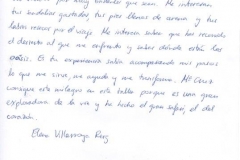 me interesan
tus sandalias gastadas, tus pies llenos de arena y tus
labios secos por el viaje. Me interesa saber que has recorrido
el desierto al que me enfrento y sabes dónde están los
oasis. Es tu experiencia sabia acompañando mis pasos
lo que me sirve, me ayuda y me transforma. Mª Cruz
consigue este milagro en este taller porque es una gran
exploradora de la voz y ha hecho el gran safari, el del
corazón.
Elena Villarroya